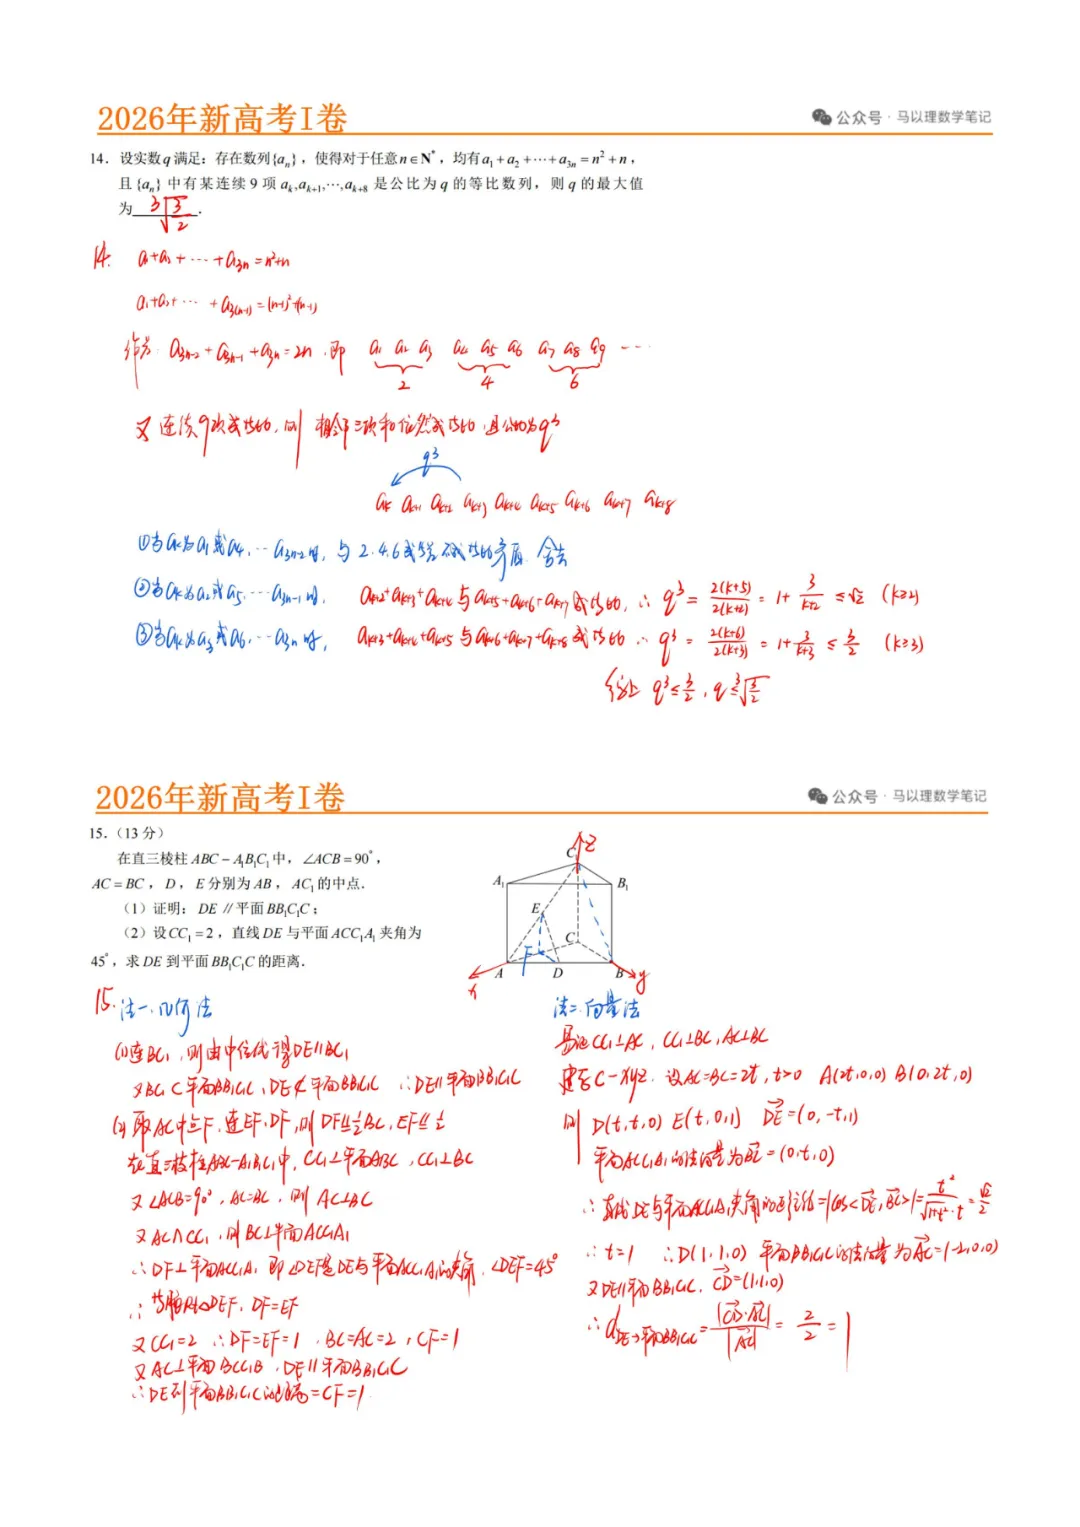 2026年新高考I卷
公众号 · 马以理数学笔记
14. 设实数q满足：存在数列{aₙ}，使得对于任意n∈N*，均有a₁+a₂+⋯+a₃ₙ=n²+n，
且{aₙ}中有某连续9项 aₖ,aₖ₊₁,⋯,aₖ₊₈ 是公比为q的等比数列，则q的最大值
为 ³√(3/2) .
14. a₁+a₂+⋯+a₃ₙ=n²+n
a₁+a₂+⋯+a₃₍ₙ₋₁₎=(n-1)²+(n-1)
作差: a₃ₙ₋₂+a₃ₙ₋₁+a₃ₙ=2n, 即 a₁ a₂ a₃ a₄ a₅ a₆ a₇ a₈ a₉ ⋯
2 4 6
又连续9项成等比, 则相邻三项和依然成等比, 且公比为q³
q³
aₖ aₖ₊₁ aₖ₊₂ aₖ₊₃ aₖ₊₄ aₖ₊₅ aₖ₊₆ aₖ₊₇ aₖ₊₈
①当aₖ为a₁或a₄, ⋯a₃ₙ₋₂时, 与2.4.6成等比矛盾 舍去
②当aₖ为a₂或a₅, ⋯a₃ₙ₋₁时, aₖ₊₂+aₖ₊₃+aₖ₊₄与aₖ₊₅+aₖ₊₆+aₖ₊₇成等比, ∴ q³=2(k+5)/2(k+2)=1+3/(k+2) (k≥2)
③当aₖ为a₃或a₆, ⋯a₃ₙ时, aₖ₊₃+aₖ₊₄+aₖ₊₅与aₖ₊₆+aₖ₊₇+aₖ₊₈成等比 ∴ q³=2(k+6)/2(k+3)=1+3/(k+3)≤3/2 (k≥3)
综上 q³≤3/2, q≤³√(3/2)
2026年新高考I卷
公众号 · 马以理数学笔记
15. （13分）
在直三棱柱ABC-A₁B₁C₁中，∠ACB=90°，
AC=BC，D，E分别为AB，AC₁的中点.
（1）证明：DE∥平面BB₁C₁C；
（2）设CC₁=2，直线DE与平面ACC₁A₁夹角为
45°，求DE到平面BB₁C₁C的距离.
C₁ z
A₁ B₁
E
C
F
A D B
x y
15. 法一. 几何法
(1)连BC₁, 则由中位线得DE∥BC₁
又BC₁⊂平面BB₁C₁C, DE⊄平面BB₁C₁C ∴DE∥平面BB₁C₁C
(2)取AC中点F, 连EF, DF, 则DF∥½BC, EF∥½
在直三棱柱ABC-A₁B₁C₁中, CC₁⊥平面ABC, CC₁⊥BC
又∠ACB=90°, AC=BC, 则AC⊥BC
又AC∩CC₁, 则BC⊥平面ACC₁A₁
∴DF⊥平面ACC₁A₁ 即∠DEF是DE与平面ACC₁A₁的夹角, ∠DEF=45°
∴等腰Rt△DEF, DF=EF
又CC₁=2 ∴DF=EF=1, BC=AC=2, CF=1
又AC⊥平面BCC₁B₁, DE∥平面BB₁C₁C
∴DE到平面BB₁C₁C的距离=CF=1.
法二. 向量法
易证CC₁⊥AC, CC₁⊥BC, AC⊥BC
建系C-xyz. 设AC=BC=2t, t>0 A(2t,0,0) B(0,2t,0)
则 D(t,t,0) E(t,0,1) DE=(0,-t,1)
平面ACC₁A₁的法向量为BC=(0,t,0)
∴直线DE与平面ACC₁A₁夹角的正弦值=|cos<DE,BC>|=t²/(√(1+t²)·t)=√2/2
∴t=1 ∴D(1,1,0) 平面BB₁C₁C的法向量为AC=(-2,0,0)
又DE∥平面BB₁C₁C, CD=(1,1,0)
∴d DE→平面BB₁C₁C=|CD·AC|/|AC|=2/2=1